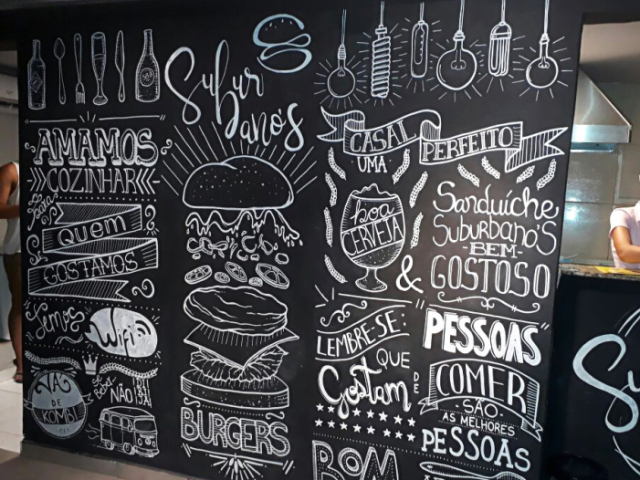 AMAMOS
COZINHAR
para
QUEM
GOSTAMOS
Temos
Wifi
VÁ
DE
KOMBI
NÃO
Suburbano's
BURGERS
CASAL
PERFEITO
UMA
boa
CERVEJA
&
Sanduíche
Suburbano's
BEM
GOSTOSO
LEMBRE-SE:
PESSOAS
QUE
Gostam
DE
COMER
SÃO
AS MELHORES
PESSOAS
BOM
Su